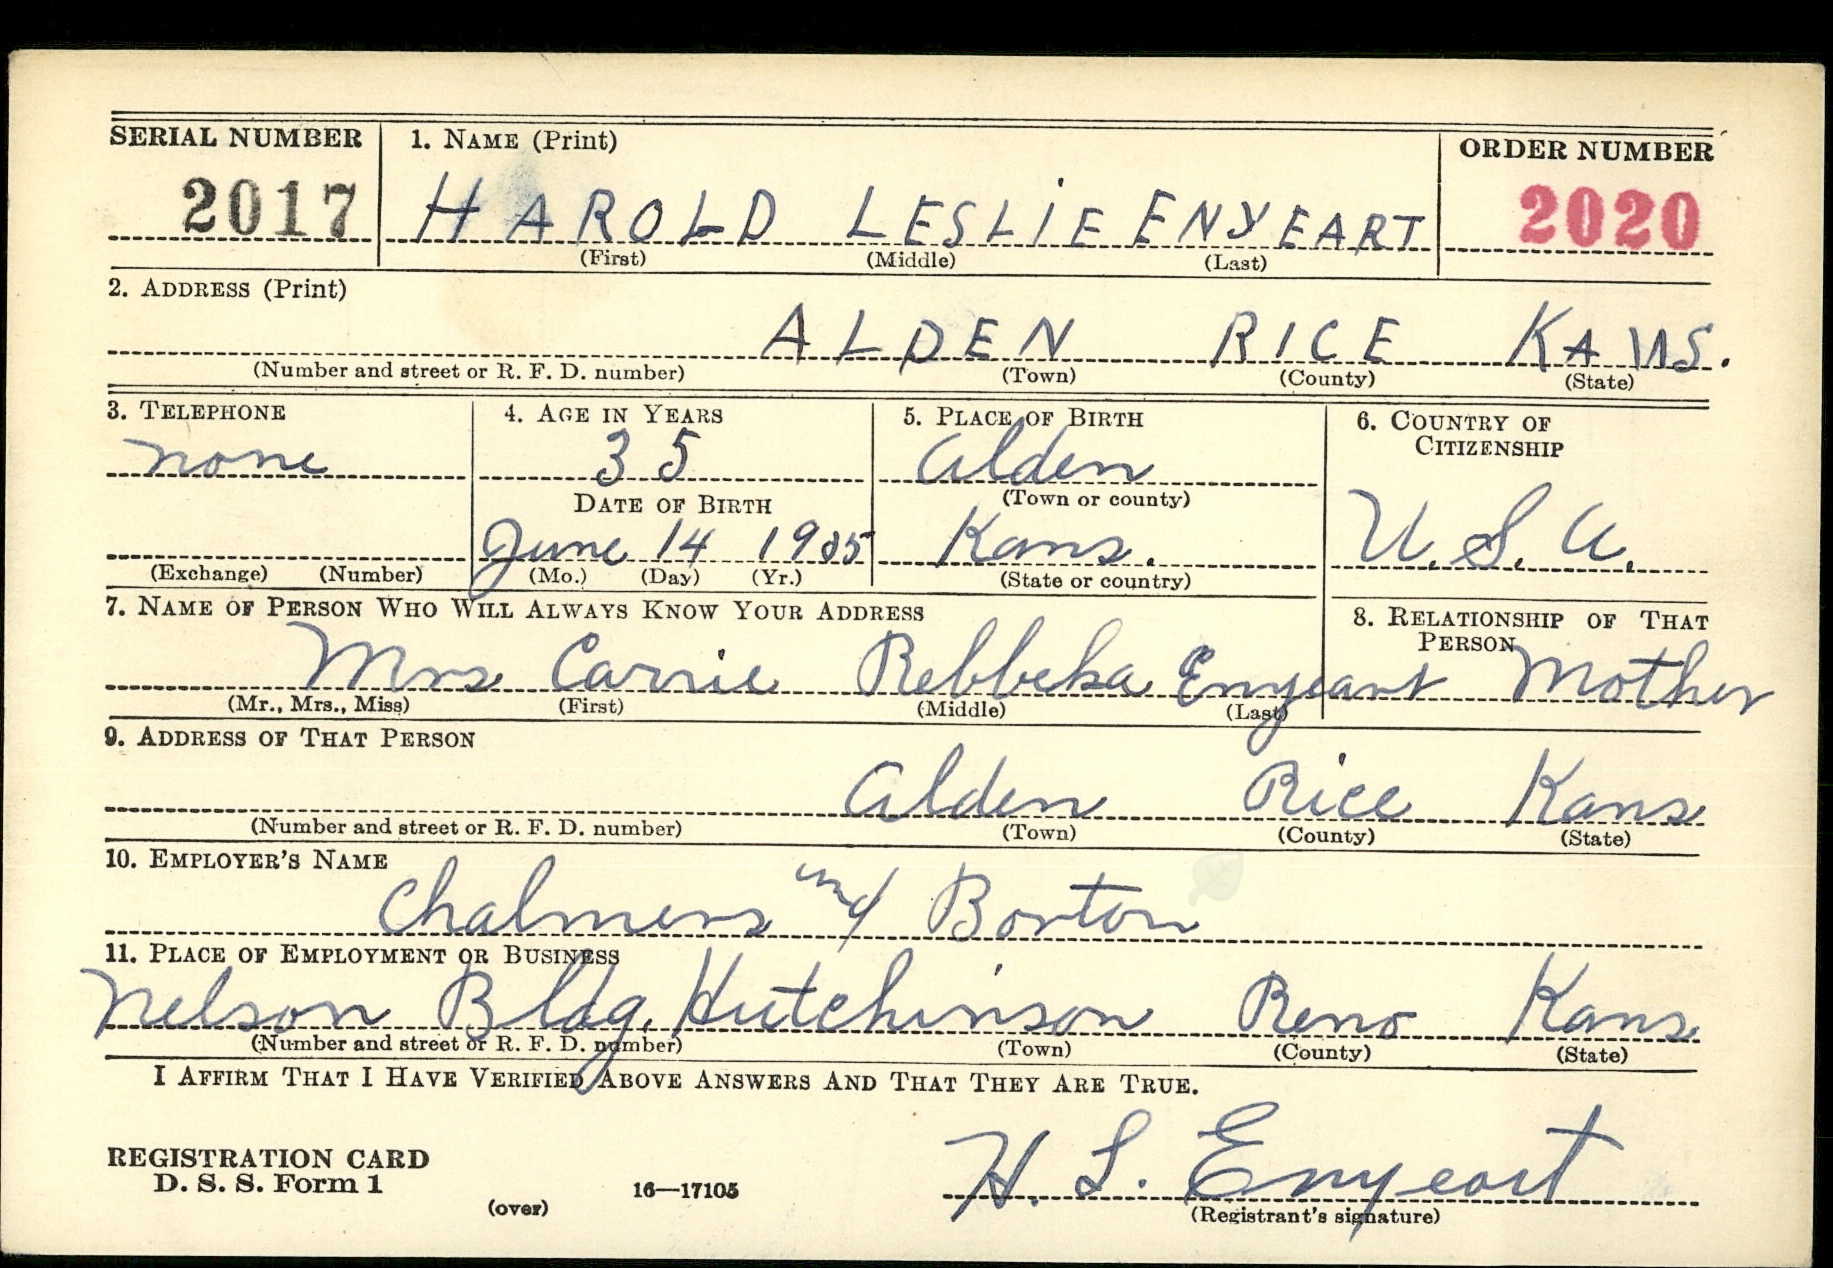 SERIAL NUMBER 1. NAME (Print) ORDER NUMBER
2017 HAROLD LESLIE ENYEART 2020
(First) (Middle) (Last)
2. ADDRESS (Print)
ALDEN RICE KANS.
(Number and street or R. F. D. number) (Town) (County) (State)
3. TELEPHONE 4. AGE IN YEARS 5. PLACE OF BIRTH 6. COUNTRY OF
CITIZENSHIP
none 35 Alden
DATE OF BIRTH (Town or county)
June 14 1905 Kans. U.S.A.
(Exchange) (Number) (Mo.) (Day) (Yr.) (State or country)
7. NAME OF PERSON WHO WILL ALWAYS KNOW YOUR ADDRESS 8. RELATIONSHIP OF THAT
PERSON
Mrs Carrie Rebbeka Enyeart Mother
(Mr., Mrs., Miss) (First) (Middle) (Last)
9. ADDRESS OF THAT PERSON
Alden Rice Kans
(Number and street or R. F. D. number) (Town) (County) (State)
10. EMPLOYER'S NAME
Chalmers and Borton
11. PLACE OF EMPLOYMENT OR BUSINESS
Nelson Bldg. Hutchinson Reno Kans
(Number and street or R. F. D. number) (Town) (County) (State)
I AFFIRM THAT I HAVE VERIFIED ABOVE ANSWERS AND THAT THEY ARE TRUE.
H. L. Enyeart
REGISTRATION CARD
D. S. S. Form 1
(over) 16—17105 (Registrant's signature)